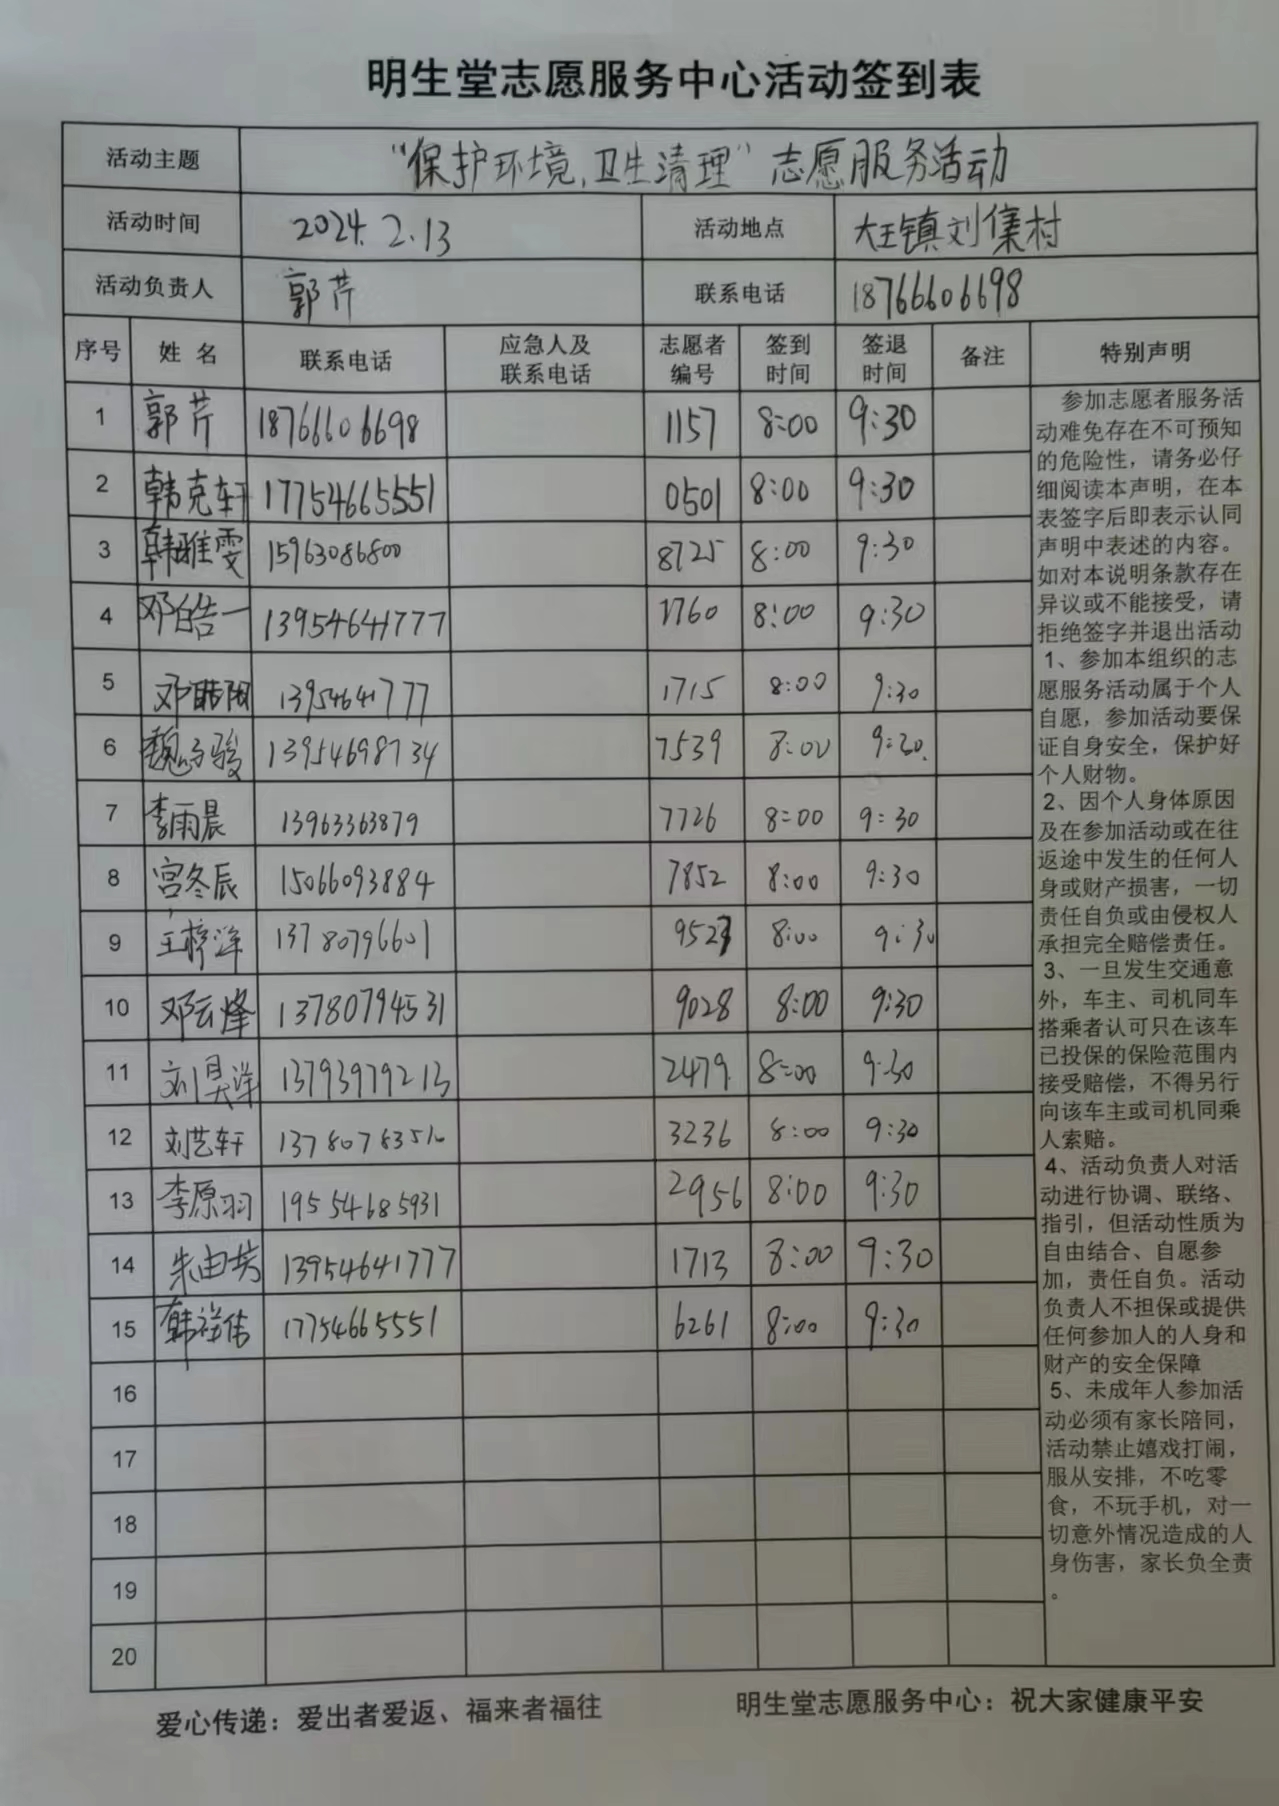 明生堂志愿服务中心活动签到表
活动主题 “保护环境,卫生清理”志愿服务活动
活动时间 2024.2.13 活动地点 大王镇刘集村
活动负责人 郭芹 联系电话 18766606698
序号 姓名 联系电话 应急人及联系电话 志愿者编号 签到时间 签退时间 备注 特别声明
1 郭芹 18766606698 1157 8:00 9:30
2 韩克轩 17754665551 0501 8:00 9:30
3 韩雅雯 15963086800 8725 8:00 9:30
4 邓皓一 13954641777 1760 8:00 9:30
5 邓皓阳 13954641777 1715 8:00 9:30
6 魏子骏 13954698734 7539 8:00 9:30
7 李雨晨 13963363879 7726 8:00 9:30
8 宫冬辰 15066093884 7852 8:00 9:30
9 王梓洋 13780796601 8:00 9:30
10 邓云烽 13780794531 9028 8:00 9:30
11 刘昊洋 13793979213 2479 8:00 9:30
12 刘艺轩 13780783510 3236 8:00 9:30
13 李原羽 19554685931 2956 8:00 9:30
14 朱由英 13954641777 1713 8:00 9:30
15 韩祥伟 17754665551 6261 8:00 9:30
16
17
18
19
20
参加志愿者服务活
动难免存在不可预知
的危险性，请务必仔
细阅读本声明，在本
表签字后即表示认同
声明中表述的内容。
如对本说明条款存在
异议或不能接受，请
拒绝签字并退出活动
1、参加本组织的志
愿服务活动属于个人
自愿，参加活动要保
证自身安全，保护好
个人财物。
2、因个人身体原因
及在参加活动或在往
返途中发生的任何人
身或财产损害，一切
责任自负或由侵权人
承担完全赔偿责任。
3、一旦发生交通意
外，车主、司机同车
搭乘者认可只在该车
已投保的保险范围内
接受赔偿，不得另行
向该车主或司机同乘
人索赔。
4、活动负责人对活
动进行协调、联络、
指引，但活动性质为
自由结合、自愿参
加，责任自负。活动
负责人不担保或提供
任何参加人的人身和
财产的安全保障
5、未成年人参加活
动必须有家长陪同，
活动禁止嬉戏打闹，
服从安排，不吃零
食，不玩手机，对一
切意外情况造成的人
身伤害，家长负全责
。
爱心传递：爱出者爱返、福来者福往 明生堂志愿服务中心：祝大家健康平安